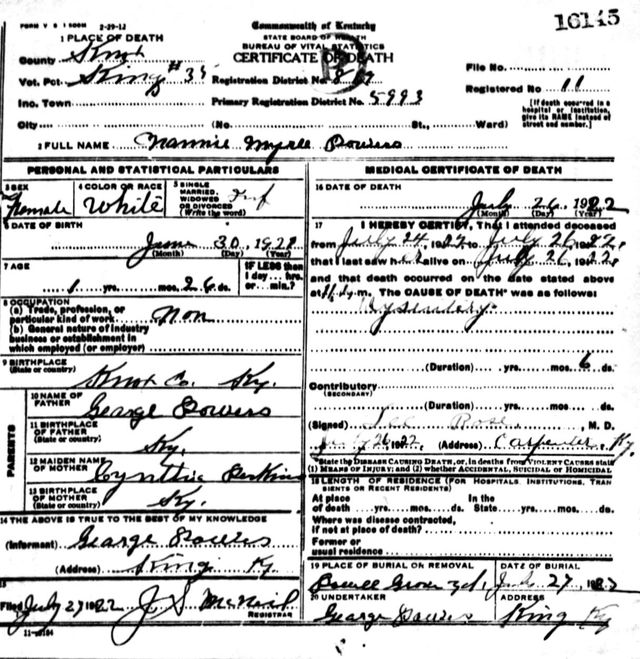 FORM V S 1 2-29-12
Commonwealth of Kentucky
16145
1 PLACE OF DEATH
STATE BOARD OF HEALTH
BUREAU OF VITAL STATISTICS
County Knox
CERTIFICATE OF DEATH
Vot. Pct. King #35 Registration District No. File No.
Inc. Town Primary Registration District No. 5993 Registered No. 11
City (No. St., Ward) [If death occurred in a hospital or institution, give its NAME instead of street and number.]
2 FULL NAME Nannie Myrtle Powers
PERSONAL AND STATISTICAL PARTICULARS
3 SEX Female
4 COLOR OR RACE White
5 SINGLE MARRIED, WIDOWED OR DIVORCED (Write the word) Inf
6 DATE OF BIRTH
June 30, 1921
(Month) (Day) (Year)
7 AGE
1 yrs. mos. 26 ds.
IF LESS than 1 day... hrs. or... min.?
8 OCCUPATION
(a) Trade, profession, or particular kind of work Non
(b) General nature of industry
business or establishment in
which employed (or employer)
9 BIRTHPLACE
(State or country)
Knox Co. Ky.
PARENTS
10 NAME OF FATHER George Powers
11 BIRTHPLACE OF FATHER (State or country) Ky.
12 MAIDEN NAME OF MOTHER Cynthia Perkins
13 BIRTHPLACE OF MOTHER (State or country) Ky.
14 THE ABOVE IS TRUE TO THE BEST OF MY KNOWLEDGE
(Informant) George Powers
(Address) King Ky
15
Filed July 27 1922 J. S. McNeil
REGISTRAR
MEDICAL CERTIFICATE OF DEATH
16 DATE OF DEATH
July 26, 1922
(Month) (Day) (Year)
17 I HEREBY CERTIFY, That I attended deceased
from July 24, 1922 to July 26 1922,
that I last saw alive on July 26, 1922,
and that death occurred on the date stated above
at m. The CAUSE OF DEATH was as follows:
Dysentery.
(Duration) yrs. mos. 6 ds.
Contributory
(SECONDARY)
(Duration) yrs. mos. ds.
(Signed) Rose, M. D.
July 26 1922 (Address) Carpenter, Ky.
State the DISEASE CAUSING DEATH, or, in deaths from VIOLENT CAUSES state
(1) MEANS OF INJURY; and (2) whether ACCIDENTAL, SUICIDAL or HOMICIDAL
18 LENGTH OF RESIDENCE (FOR HOSPITALS, INSTITUTIONS, TRANSIENTS OR RECENT RESIDENTS)
At place of death yrs. mos. ds. In the State yrs. mos. ds.
Where was disease contracted,
if not at place of death?
Former or
usual residence
19 PLACE OF BURIAL OR REMOVAL DATE OF BURIAL
27 1922
20 UNDERTAKER ADDRESS
George Powers King Ky